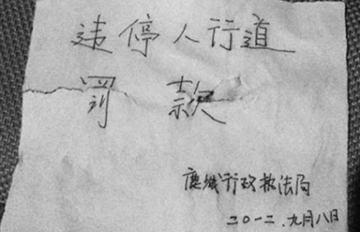 违停人行道
罚款
鹿城行政执法局
二〇一二.九月八日